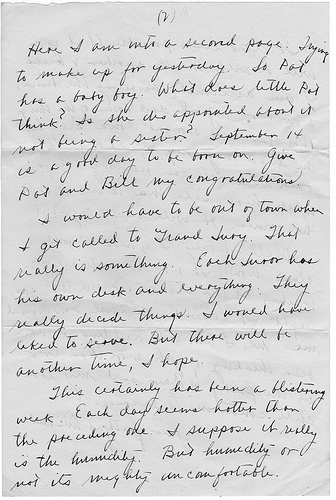 (2)
Here I am into a second page. Trying
to make up for yesterday. So Pat
has a baby boy. What does little Pat
think? Is she disappointed about it
not being a sister? September 14
is a good day to be born on. Give
Pat and Bill my congratulations.
I would have to be out of town when
I get called to Grand Jury. That
really is something. Each Juror has
his own desk and everything. They
really decide things. I would have
liked to serve. But there will be
another time, I hope.
This certainly has been a blistering
week. Each day seems hotter than
the preceding one. I suppose it really
is the humidity. But humidity or
not its mighty uncomfortable.